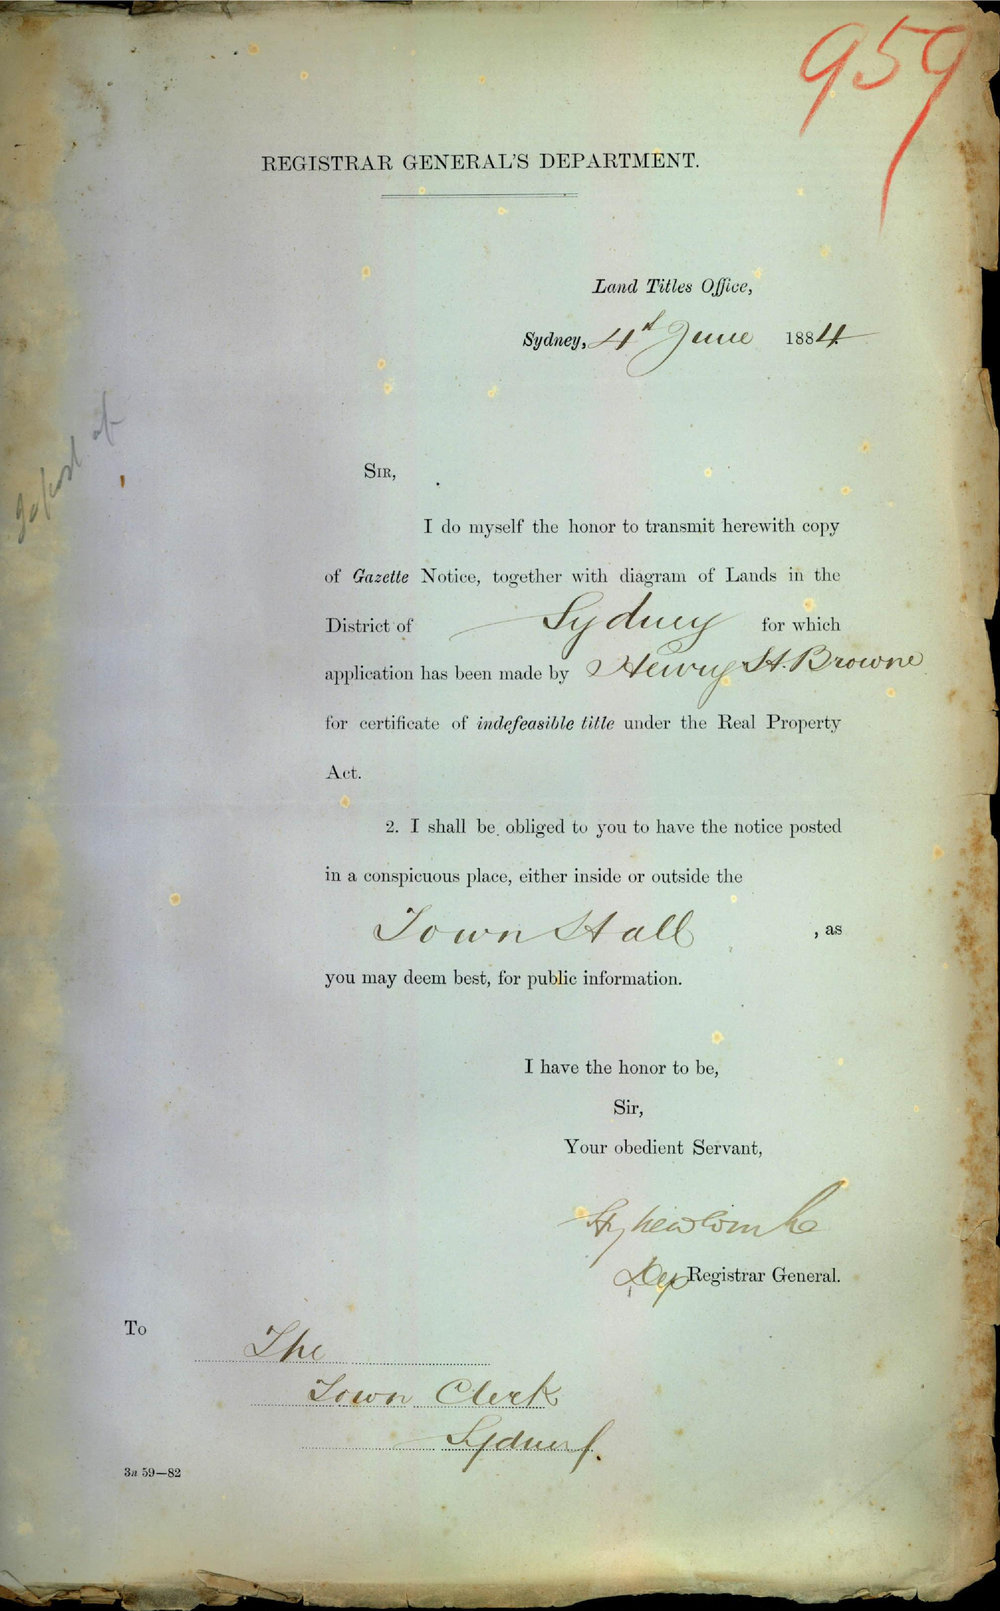 959
REGISTRAR GENERAL'S DEPARTMENT.
Land Titles Office,
Sydney, 4th June 1884
SIR,
I do myself the honor to transmit herewith copy
of Gazette Notice, together with diagram of Lands in the
District of Sydney for which
application has been made by Henry H. Browne
for certificate of indefeasible title under the Real Property
Act.
2. I shall be obliged to you to have the notice posted
in a conspicuous place, either inside or outside the
Town Hall , as
you may deem best, for public information.
I have the honor to be,
Sir,
Your obedient Servant,
Newcombe
Dep Registrar General.
To
The
Town Clerk
Sydney.
3a 59—82